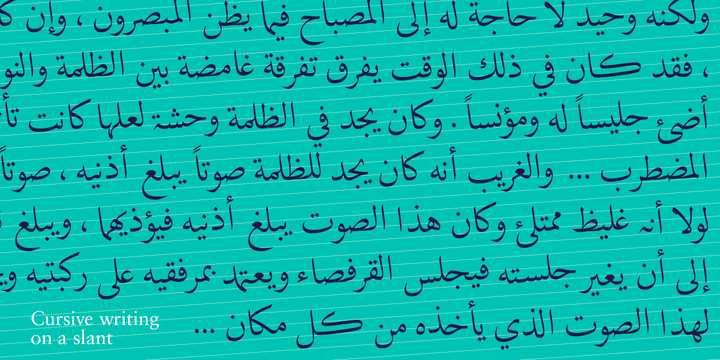 ولكنه وحيد لا حاجة له إلى المصباح فيما يظن المبصرون ، وإن
، فقد كان في ذلك الوقت يفرق تفرقة غامضة بين الظلمة
أضئ جليساً له ومؤنساً . وكان يجد في الظلمة وحشة لعلها كانت
المضطرب ... والغريب أنه كان يجد للظلمة صوتاً يبلغ أذنيه ، صوتاً
لولا أنه غليظ ممتلئ وكان هذا الصوت يبلغ أذنيه فيؤذيهما ، ويبلغ
إلى أن يغير جلسته فيجلس القرفصاء ويعتمد بمرفقيه على ركبتيه
لهذا الصوت الذي يأخذه من كل مكان ...
Cursive writing
on a slant